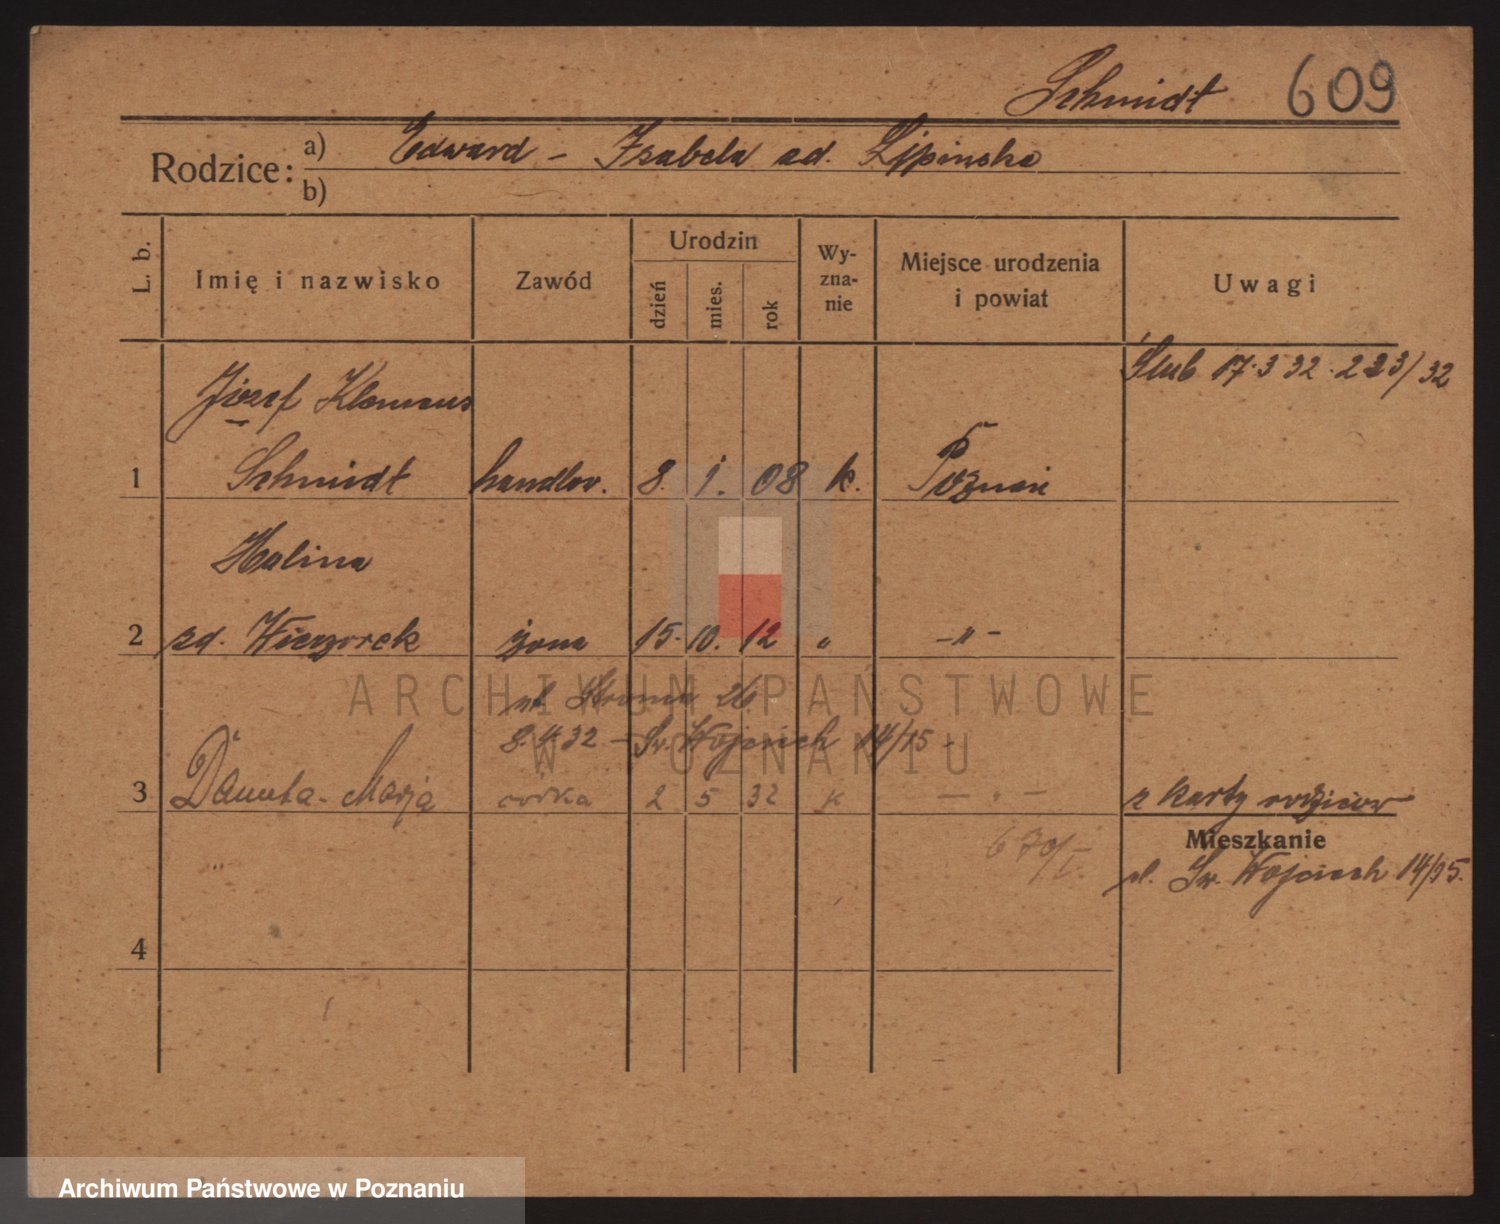 Schmidt 609
Rodzice: a) Edward - Izabela zd. Lipinska
b)
L. b. Imię i nazwisko Zawód Urodzin dzień mies. rok Wy-zna-nie Miejsce urodzenia i powiat Uwagi
Ślub 17.3 32. 223/32
Józef Klemens
1 Schmidt handlow. 8. 1. 08 k. Poznań
Halina
2 zd. Wieczorek żona 15. 10. 12 " -"-
ul. 26
8.4.32 - Św. Wojciech 14/15 -
3 Danuta-Marja córka 2 5 32 k - " - z karty rodziców
670/I.
Mieszkanie
ul. Św. Wojciech 14/15.
4
ARCHIWUM PAŃSTWOWE
W POZNANIU
Archiwum Państwowe w Poznaniu